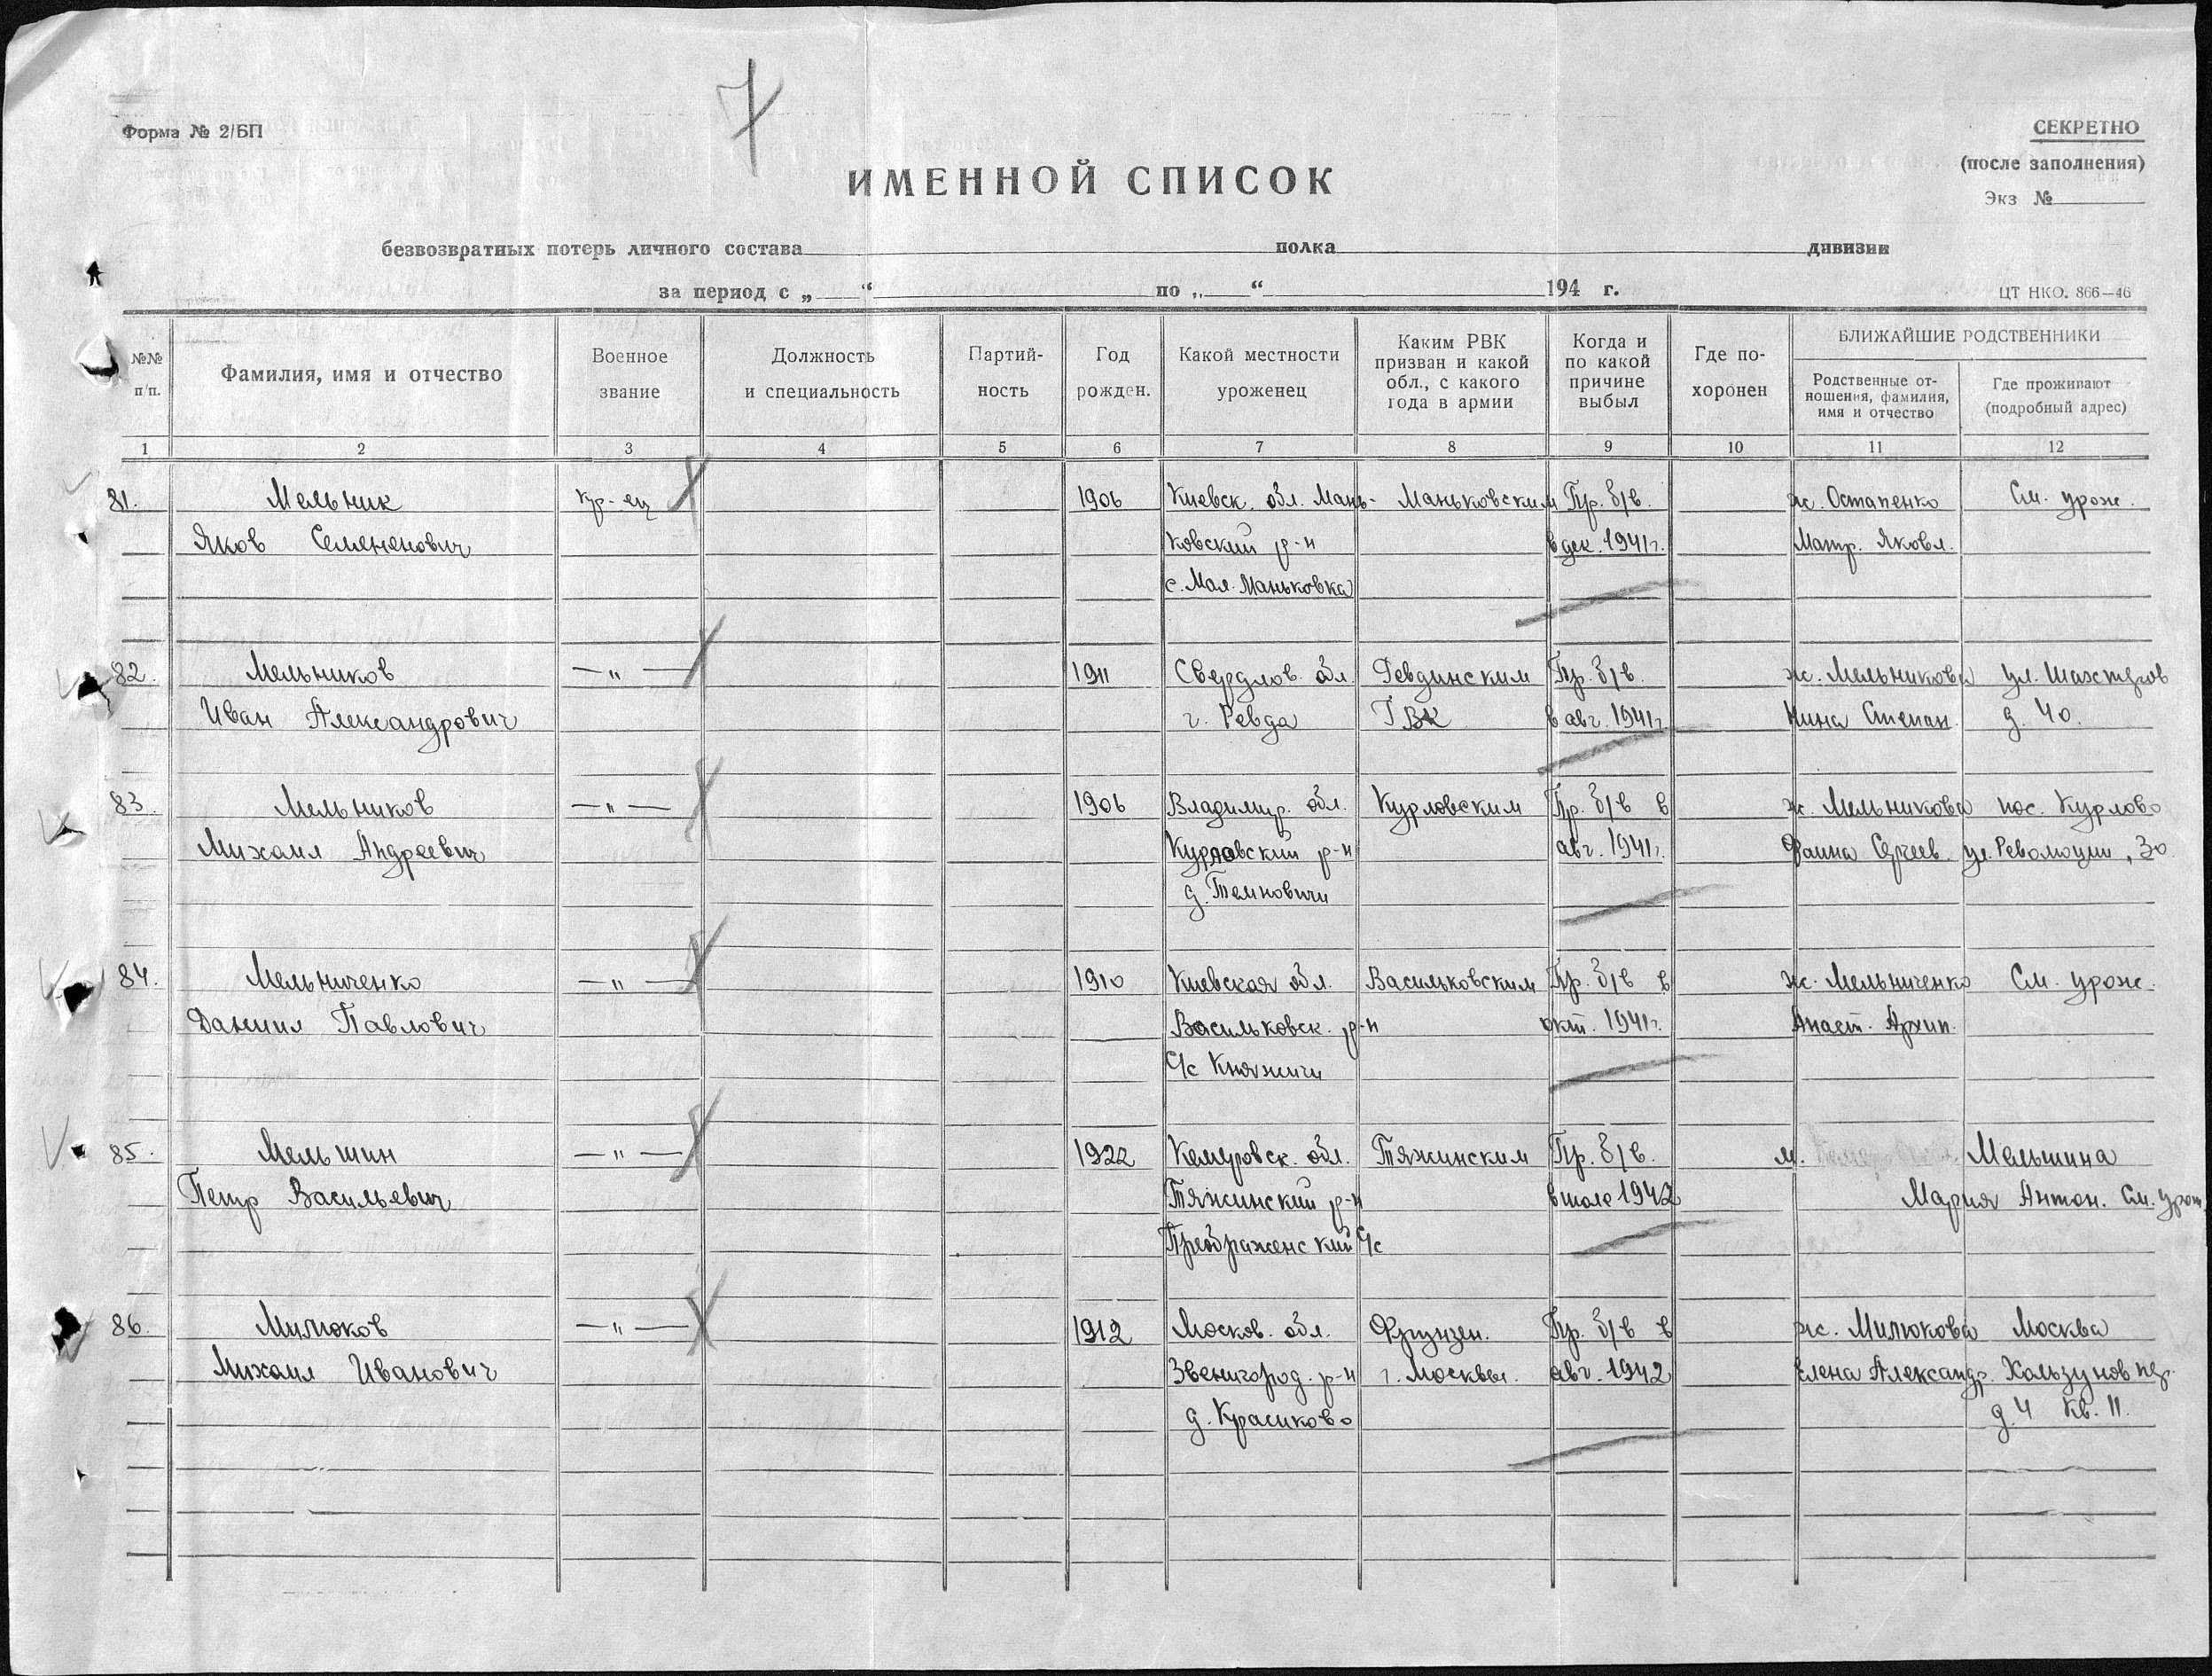 7
Форма № 2/БП
СЕКРЕТНО
(после заполнения)
Экз №
ИМЕННОЙ СПИСОК
безвозвратных потерь личного состава полка дивизии
за период с „ “ по „ “ 194 г.
ЦТ НКО. 866—46
№№ п/п.
Фамилия, имя и отчество
Военное звание
Должность и специальность
Партий-
ность
Год рожден.
Какой местности уроженец
Каким РВК
призван и какой
обл., с какого
года в армии
Когда и
по какой
причине
выбыл
Где по-
хоронен
БЛИЖАЙШИЕ РОДСТВЕННИКИ
Родственные от-
ношения, фамилия,
имя и отчество
Где проживают
(подробный адрес)
1 2 3 4 5 6 7 8 9 10 11 12
81. Мельник кр-ец 1906 Киевск. обл. Мань- Маньковским Пр. б/в. ж. Остапенко См. урож.
Яков Семененович ковский р-н в дек. 1941г. Матр. Яковл.
с. Мал. Маньковка
82. Мельников —"— 1911 Свердлов. обл. Ревдинским Пр. б/в. ж. Мельникова ул. Шахтеров
Иван Александрович г. Ревда ГВК в авг. 1941г. Нина Степан. д. 40.
83. Мельников —"— 1906 Владимир. обл. Курловским Пр. б/в в ж. Мельникова пос. Курлово
Михаил Андреевич Курловский р-н авг. 1941г. Фаина Сергеев. ул. Революции, 30
д. Темновичи
84. Мельниченко —"— 1910 Киевская обл. Васильковским Пр. б/в в ж. Мельниченко См. урож.
Даниил Павлович Васильковск. р-н окт. 1941г. Анаст. Архип.
С/с Княжичи
85. Мельшин —"— 1922 Кемеровск. обл. Тяжинским Пр. б/в. м. Мельшина
Петр Васильевич Тяжинский р-н в июле 1942 Мария Антон. См. урож.
Преображенский С/с
86. Милюков —"— 1912 Москов. обл. Фрунзен. Пр. б/в в ж. Милюкова Москва
Михаил Иванович Звенигород. р-н г. Москвы. авг. 1942 Елена Александр. Хользунов пер.
д. Красиково д. 4 кв. 11.